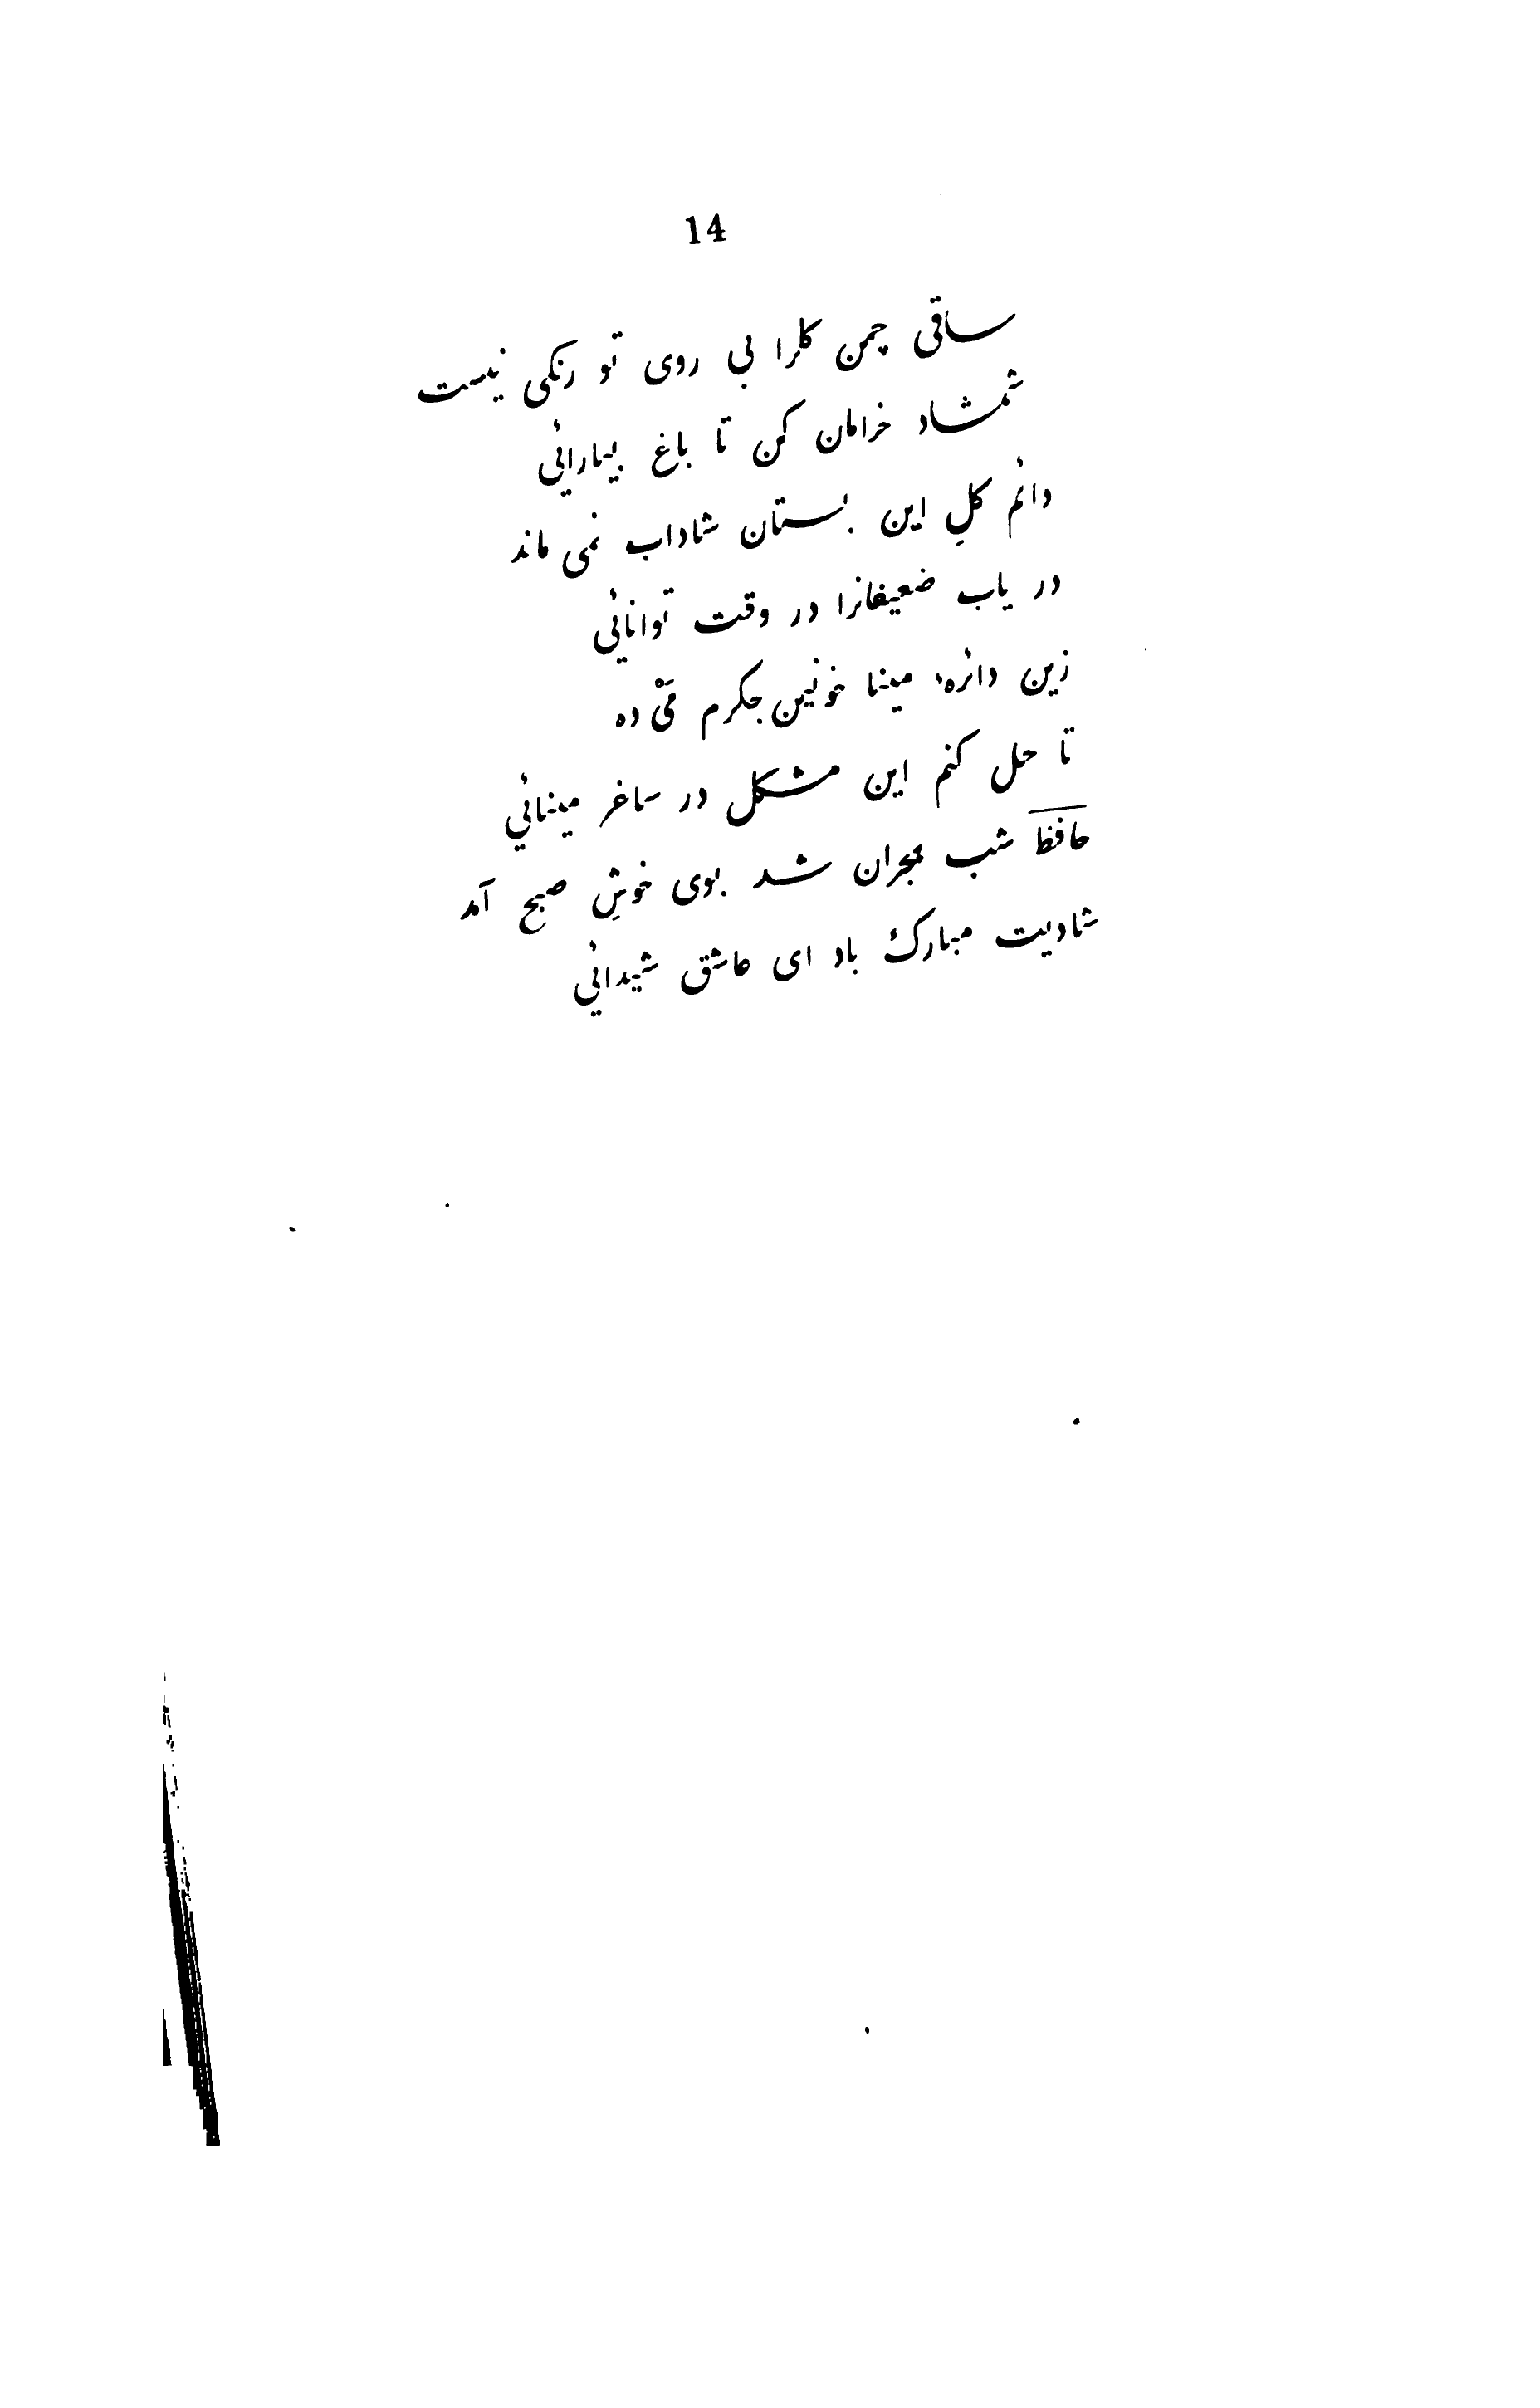 14
ساقی چمن کلرا بی روی تو رنکی نیست
شمشاد خرامان کن تا باغ بیارائی
دائم کلِ این بستان شاداب نمی ماند
در یاب ضعیفانرا در وقت توانائی
زین دائرهٔ مینا خونین جکرم مَیْ ده
تا حل کنم این مشکل در ساغر مینائی
حافظ شب هجران شد بوی خوشِ صبح آمد
شادیت مبارک باد ای عاشق شیدائی